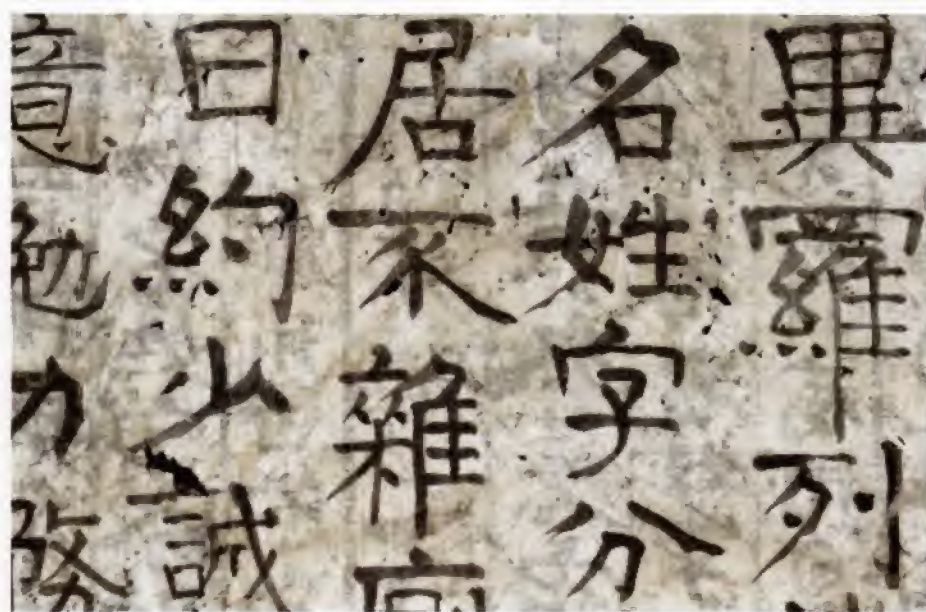 異羅列
名姓字分
居不雜廁
日約少誠
意勉力務